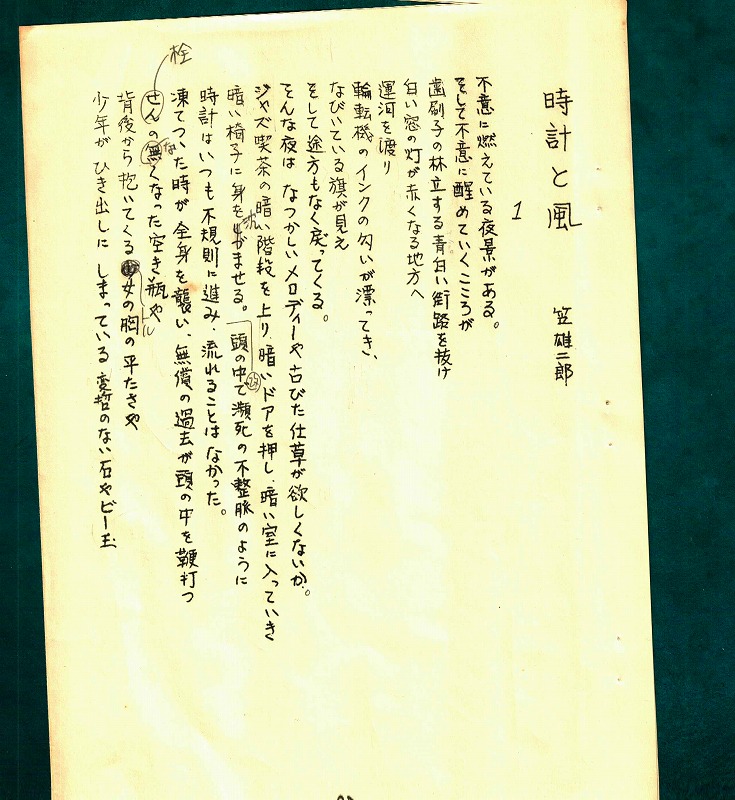 時計と風
笠雄二郎
1
不意に燃えている夜景がある。
そして不意に醒めていくこころが
歯刷子の林立する青白い街路を抜け
白い窓の灯が赤くなる地方へ
運河を渡り
輪転機のインクの匂いが漂ってき、
なびいている旗が見え
そして途方もなく戻ってくる。
そんな夜は なつかしいメロディーや古びた仕草が欲しくないか。
ジャズ喫茶の暗い階段を上り、暗いドアを押し、暗い室に入っていき
暗い椅子に身を沈ませる。頭の中で瀕死の不整脈のように
時計はいつも不規則に進み、流れることはなかった。
凍てついた時が全身を襲い、無償の過去が頭の中を鞭打つ
栓
せんの無くなった空き瓶や
な
背後から抱いてくる女の胸の平たさや
トル
少年がひき出しに しまっている 変哲のない石やビー玉